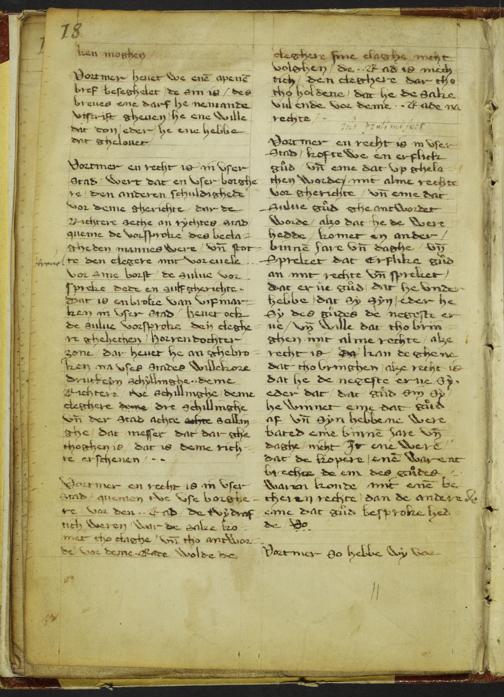 18
ken moghen
Vortmer hevet we enē apenē
bref beseghelet de sin is / des
breves ene darf he nemande
utscrift gheven he ene wille
dat don / eder he ene hebbe
dat ghelovet
Vortmer en recht is in vser
stad / Wert dat en vser borghe
re / den anderen schuldighede
vor deme gherichte / dar de
Richtere sete an rychtes stad
queme de vorsproke des becla
gheden mannes were / vn̄ stot
te den clegere mit vorevele
vor sine borst / de sulve vor
sproke dede en sulfgherichte.
dat is en broke van vif mar
ken in vser stad / hevet ock
de sulve vorsproke den cleghe
re ghehethen / horrendochter
zone / dar hevet he an ghebro
ken na vses stades willekore
druttein schyllinghe. deme
Richtere twe schillinghe deme
cleghere dre schillinghe
vn̄ der stad achte schillin
ghe / dat messet dat dar ghe
thoghen is / dat is deme rich
te erschenen
Vortmer en recht is in vser
stad / quemen twe vse borghe
re vor den
lich weren / wor de sake ko
met tho claghe / vn̄ tho antwor
de vor deme Rade / wolde de
cleghere sine claghe nicht
volghen / de
lich / den cleghere dar tho
tho holdene / dat he de sake
vul ende vor deme
rechte /
Vortmer en recht is in vser
stad / kofte we en erflick
gūd / vn̄ eme dat vp ghela
then worde / mit alme rechte
vor gherichte / vn̄ eme dat
sulve gūd ghe antwordet
worde / also dat he de were
hedde / komet en ander /
binnē jare vn̄ daghe / vn̄
spreket dat erflike gūd
an mit rechte vn̄ spreket /
dat er ūe gūd / dat he vnder
hebbe / dat sy syn / eder he
sy des gūdes de negeste er
ve / vn̄ wille dat tho brin
ghen mit alme rechte / alze
recht is / kan de ghene
dat tho bringhen / alze recht is
dat he de negeste erve sy.
eder dat / dat gūd sin sy
he winnet eme dat gūd
af / vn̄ syn hebbene were
bated eme binnē jare vn̄
daghe nicht / ene were
dat de kopere / enē warent
brochte de em des gūdes
waren konde / mit enē be
theren rechte / dan de andere de
eme dat gūd besproken hed
de
Vortmer so hebbe wy vor